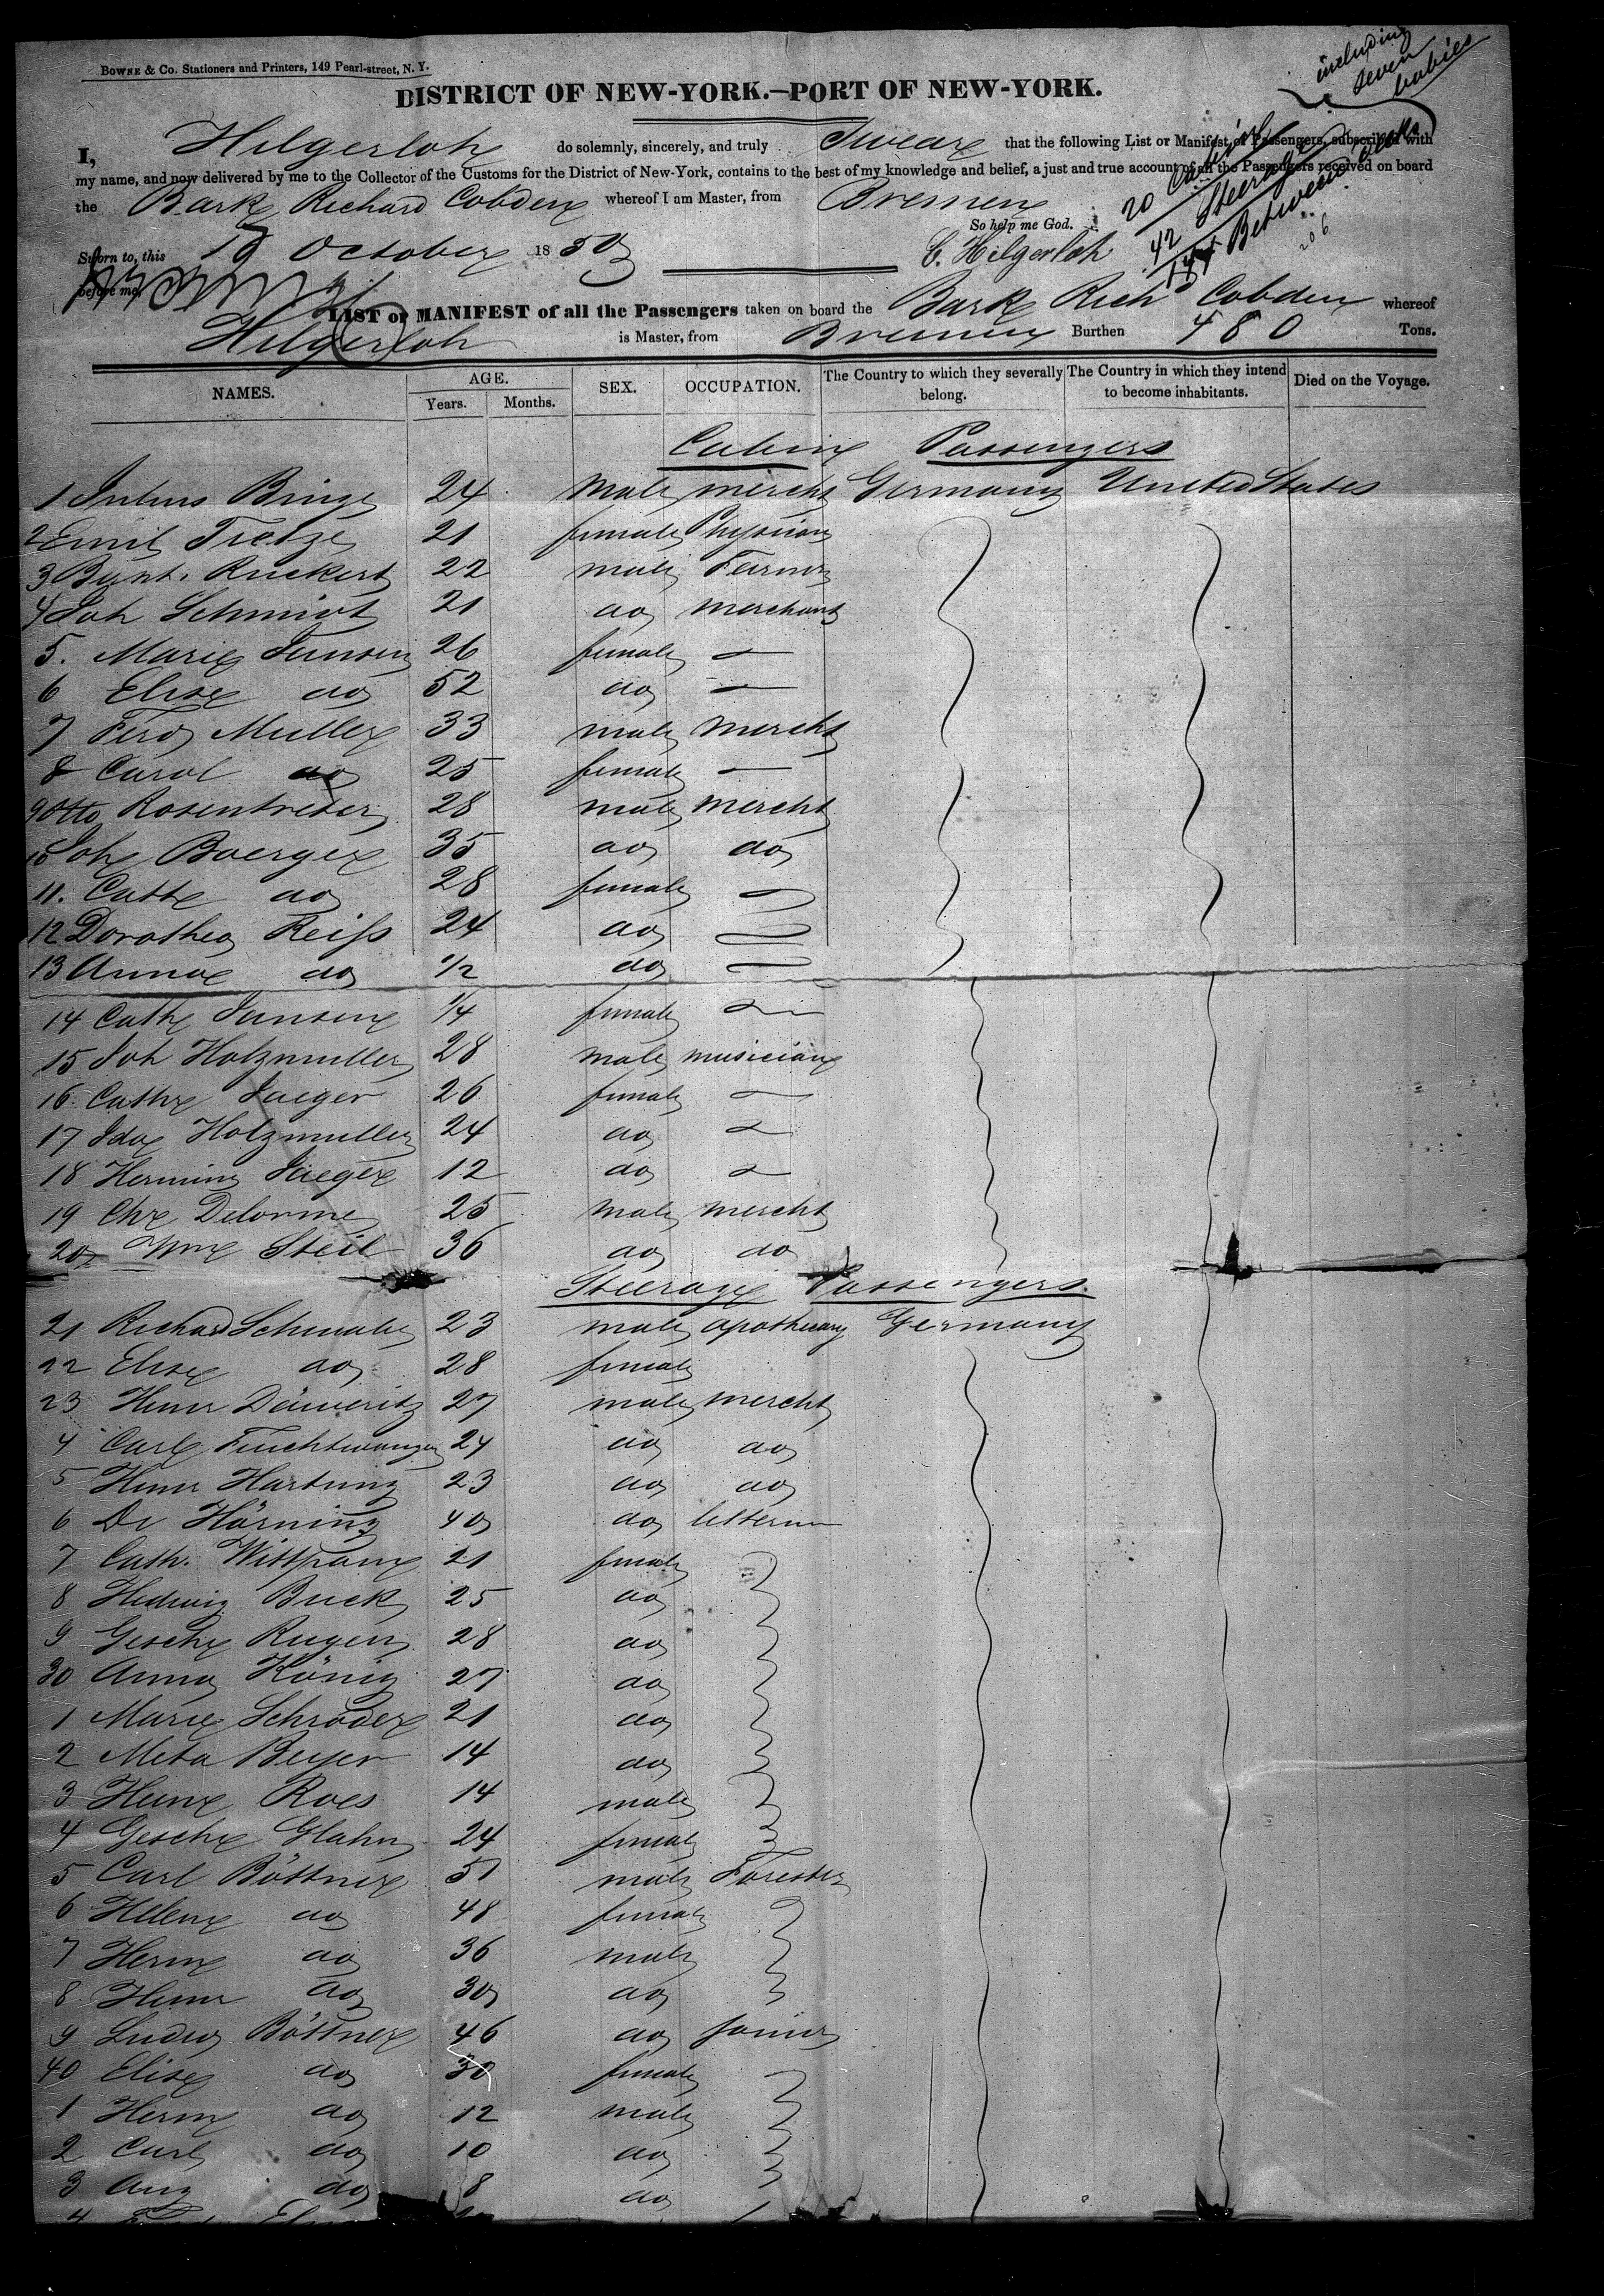 including
seven
babies
Bowne & Co. Stationers and Printers, 149 Pearl-street, N. Y.
DISTRICT OF NEW-YORK.—PORT OF NEW-YORK.
I, Hilgerloh do solemnly, sincerely, and truly Swear that the following List or Manifest of Passengers, subscribed with
my name, and now delivered by me to the Collector of the Customs for the District of New-York, contains to the best of my knowledge and belief, a just and true account of all the Passengers received on board
the Bark Richard Cobden whereof I am Master, from Bremen
20 Cabin
42 Steerage
144 Between decks
206
So help me God.
Sworn to, this 18 October 1850
C. Hilgerloh
before me,
LIST or MANIFEST of all the Passengers taken on board the Bark Richd Cobden whereof
Hilgerloh is Master, from Bremen Burthen 480 Tons.
NAMES. AGE. Years. Months. SEX. OCCUPATION. The Country to which they severally belong. The Country in which they intend to become inhabitants. Died on the Voyage.
Cabin Passengers
1 Julius Binge 24 male mercht Germany United States
2 Emil Tietze 21 female Physician
3 Rückert 22 male Farmer
4 Joh Schmidt 21 do merchant
5. Marie Jansen 26 female —
6 Elise do 52 do —
7 Ferd Muller 33 male mercht
8 Carol do 25 female —
9 Otto Rosentreter 28 male mercht
10 Joh Boerger 35 do do
11. Cath do 28 female —
12 Dorothea Reiss 24 do —
13 Anna do 1/2 do —
14 Cath Jansen 1/4 female —
15 Joh Holzmuller 28 male musician
16 Cathe Jaeger 26 female —
17 Ida Holzmuller 24 do —
18 Hermine Jaeger 12 do —
19 Chr Delorme 25 male mercht
20 Wm Steil 36 do do
Steerage Passengers.
21 Richard Schwabe 23 male apothecary Germany
22 Elise do 28 female
23 Henr Dämeritz 27 male mercht
4 Carl Feuchtwanger 24 do do
5 Henr Hartung 23 do do
6 De Hörning 40 do
7 Cath. 21 female
8 Hedwig Buck 25 do
9 Gesche Rugen 28 do
30 Anna König 27 do
1 Marie Schröder 21 do
2 Meta Beyer 14 do
3 Henr Roes 14 male
4 Gesche Glahn 24 female
5 Carl Böttner 51 male Forester
6 Helene do 48 female
7 Herm do 36 male
8 Henr do 30 do
9 Ludw Böttner 46 do joiner
40 Elise do 30 female
1 Herm do 12 male
2 Carl do 10 do
3 Aug do 8 do
4